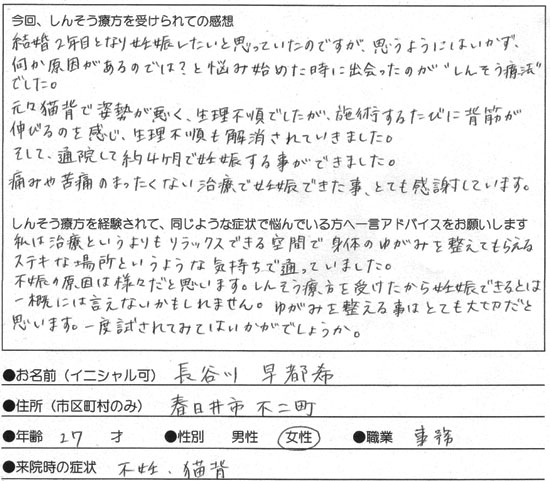 今回、しんそう療方を受けられての感想
結婚2年目となり妊娠したいと思っていたのですが、思うようにはいかず、
何か原因があるのでは?と悩み始めた時に出会ったのが"しんそう療法"
でした。
元々猫背で姿勢が悪く、生理不順でしたが、施術するたびに背筋が
伸びるのを感じ、生理不順も解消されていきました。
そして、通院して約4ヶ月で妊娠する事ができました。
痛みや苦痛のまったくない治療で妊娠できた事、とても感謝しています。
しんそう療方を経験されて、同じような症状で悩んでいる方へ一言アドバイスをお願いします
私は治療というよりもリラックスできる空間で身体のゆがみを整えてもらえる
ステキな場所というような気持ちで通っていました。
不妊の原因は様々だと思います。しんそう療方を受けたから妊娠できるとは
一概には言えないかもしれません。ゆがみを整える事はとても大切だと
思います。一度試されてみてはいかがでしょうか。
●お名前(イニシャル可) 長谷川 早都希
●住所(市区町村のみ) 春日井市 不二町
●年齢 27 才 ●性別 男性 女性 ●職業 事務
●来院時の症状 不妊、猫背